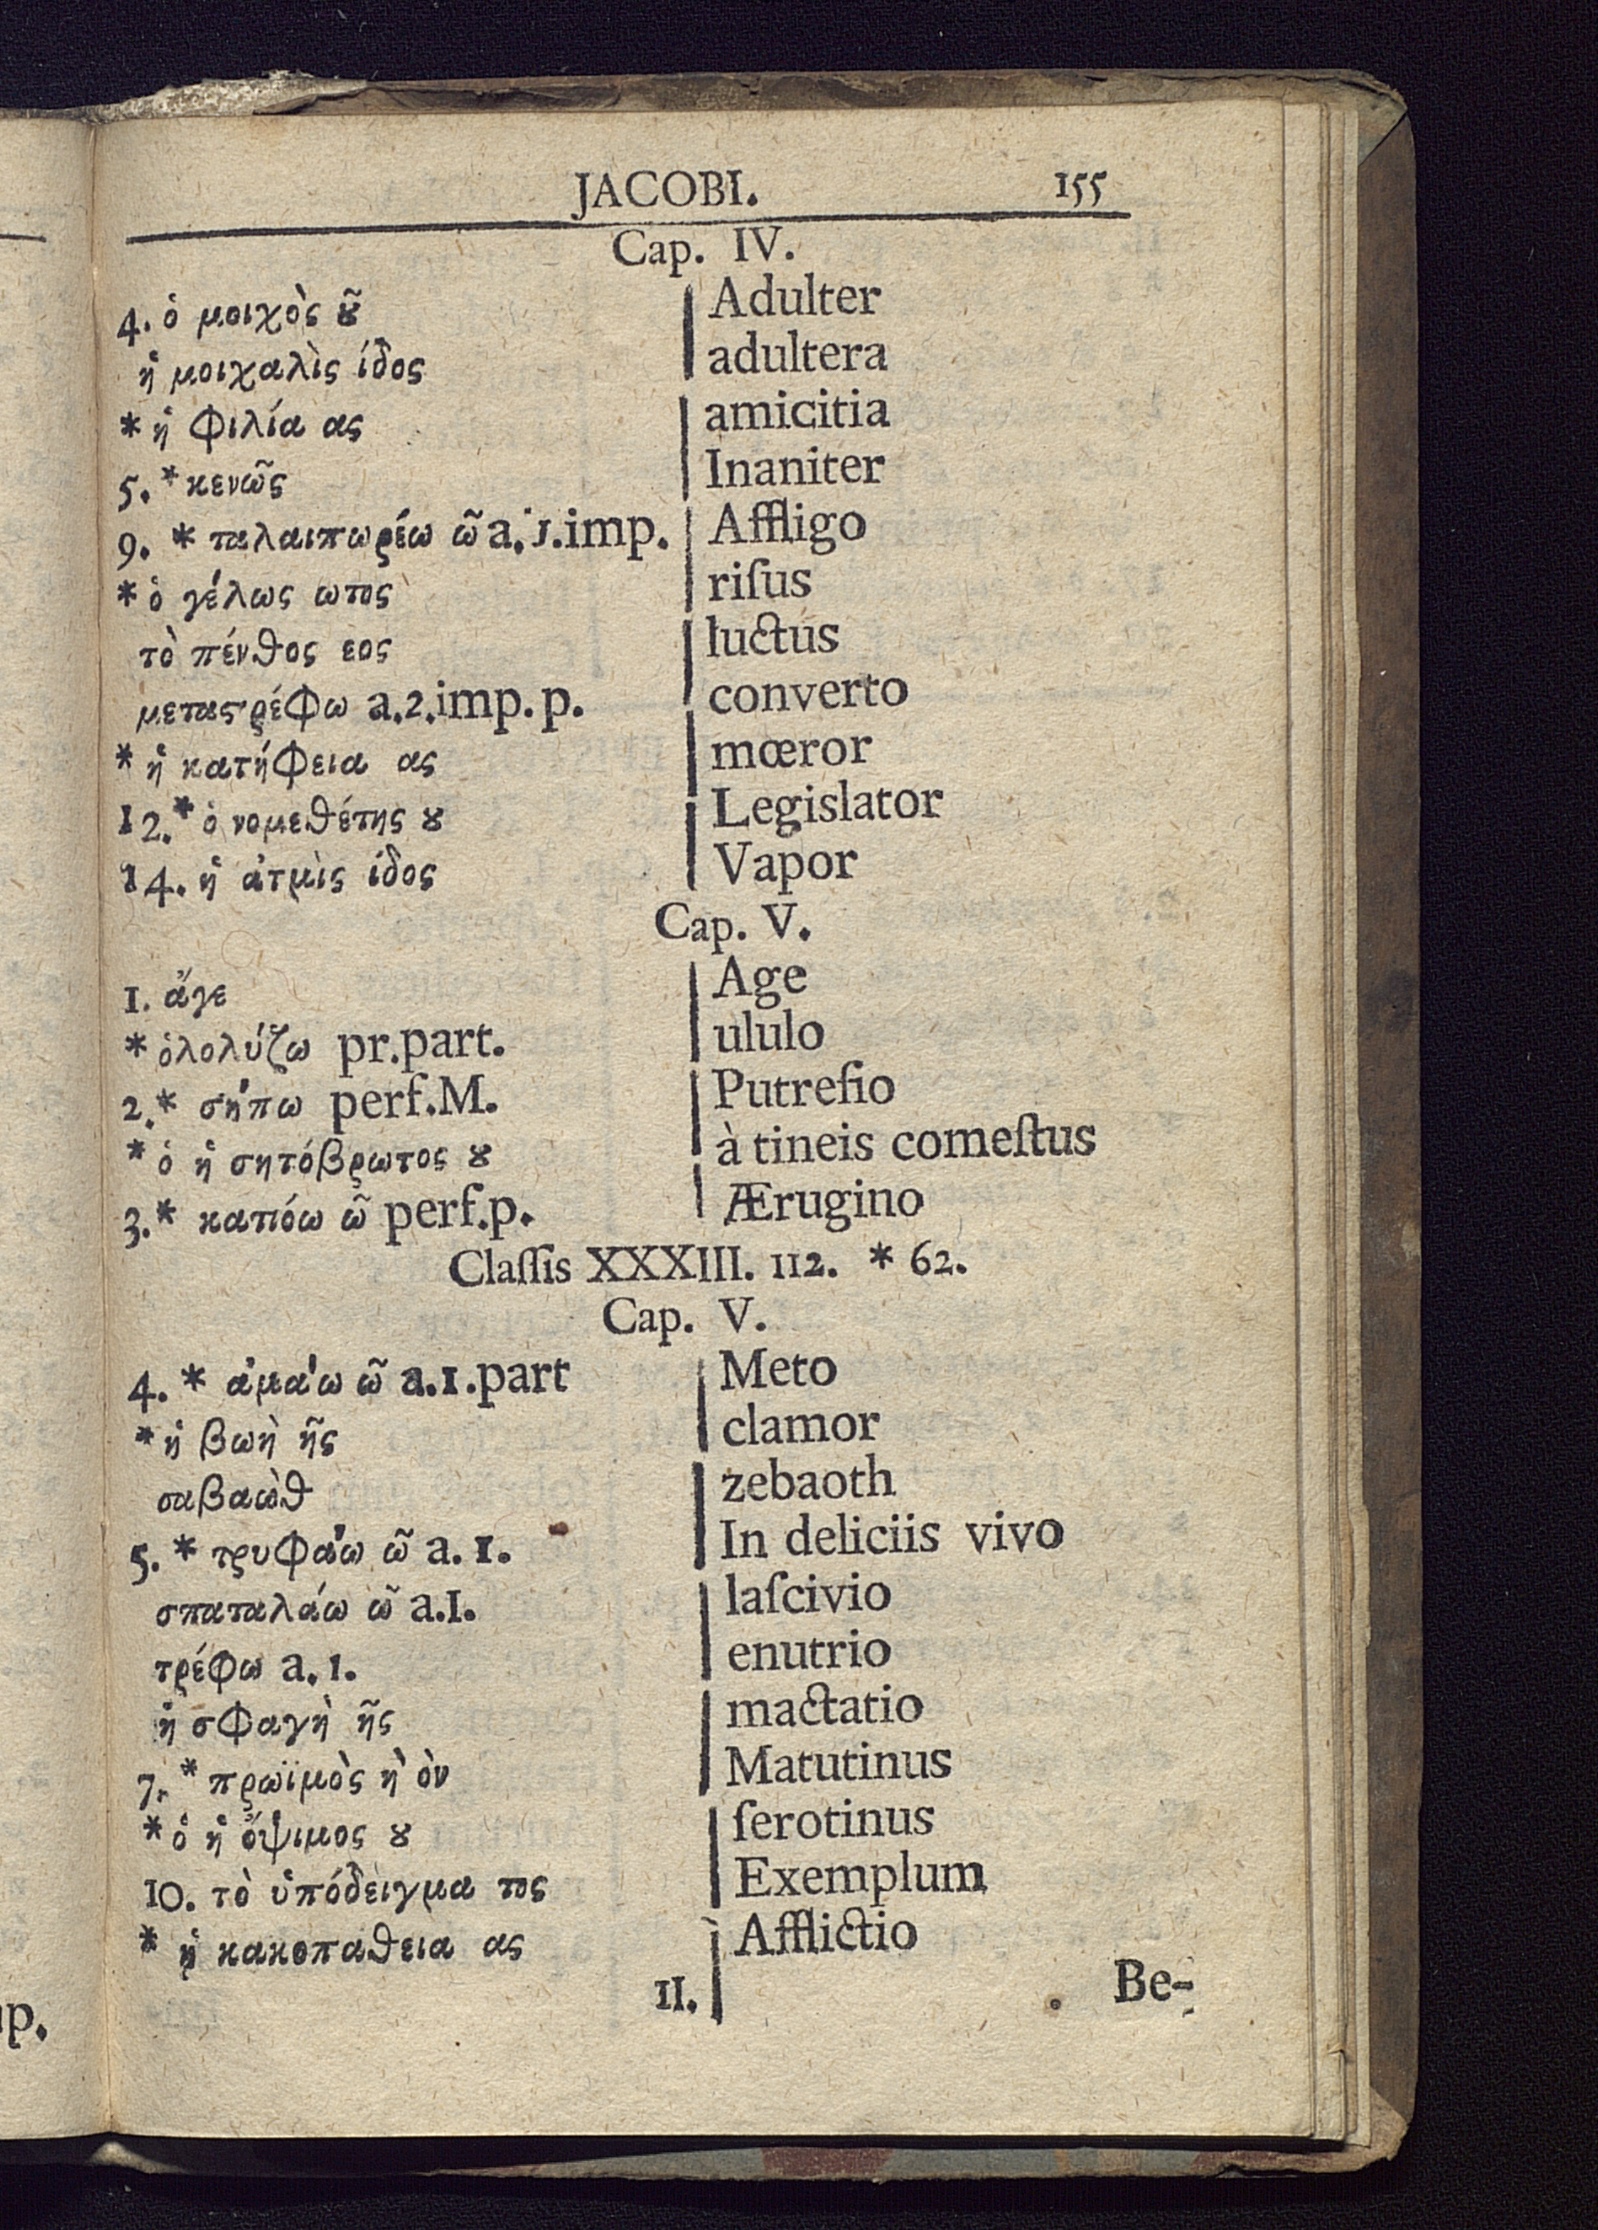 JACOBI. 155
Cap. IV.
4. ὁ μοιχὸς ȣ͂ Adulter
ἡ μοιχαλὶς ίδος adultera
* ἡ φιλία ας amicitia
5. * κενῶς Inaniter
9. * ταλαιπωρέω ῶ a. 1. imp. Affligo
* ὁ γέλως ωτος riſus
τὸ πένθος εος luctus
μεταϛρέφω a. 2. imp. p. converto
* ἡ κατήφεια ας mœror
12. * ὁ νομεθέτης ȣ Legislator
14. ἡ ἀτμὶς ίδος Vapor
Cap. V.
1. ἄγε Age
* ὀλολύζω pr. part. ululo
2. * σήπω perf. M. Putrefio
* ὁ ἡ σητόβρωτος ȣ à tineis comeſtus
3. * κατιόω ῶ perf. p. Ærugino
Claſſis XXXIII. 112. * 62.
Cap. V.
4. * ἀμάω ῶ a. 1. part Meto
* ἡ βωὴ ῆς clamor
σαβαὼθ zebaoth
5. * τρυφάω ῶ a. 1. In deliciis vivo
σπαταλάω ῶ a. 1. laſcivio
τρέφω a. 1. enutrio
ἡ σφαγὴ ῆς mactatio
7. * πρωϊμὸς ὴ ὸν Matutinus
* ὁ ἡ ὄψιμος ȣ ſerotinus
10. τὸ ὑπόδειγμα τος Exemplum
* ἡ κακοπαθεια ας Afflictio
11. Be-
up.